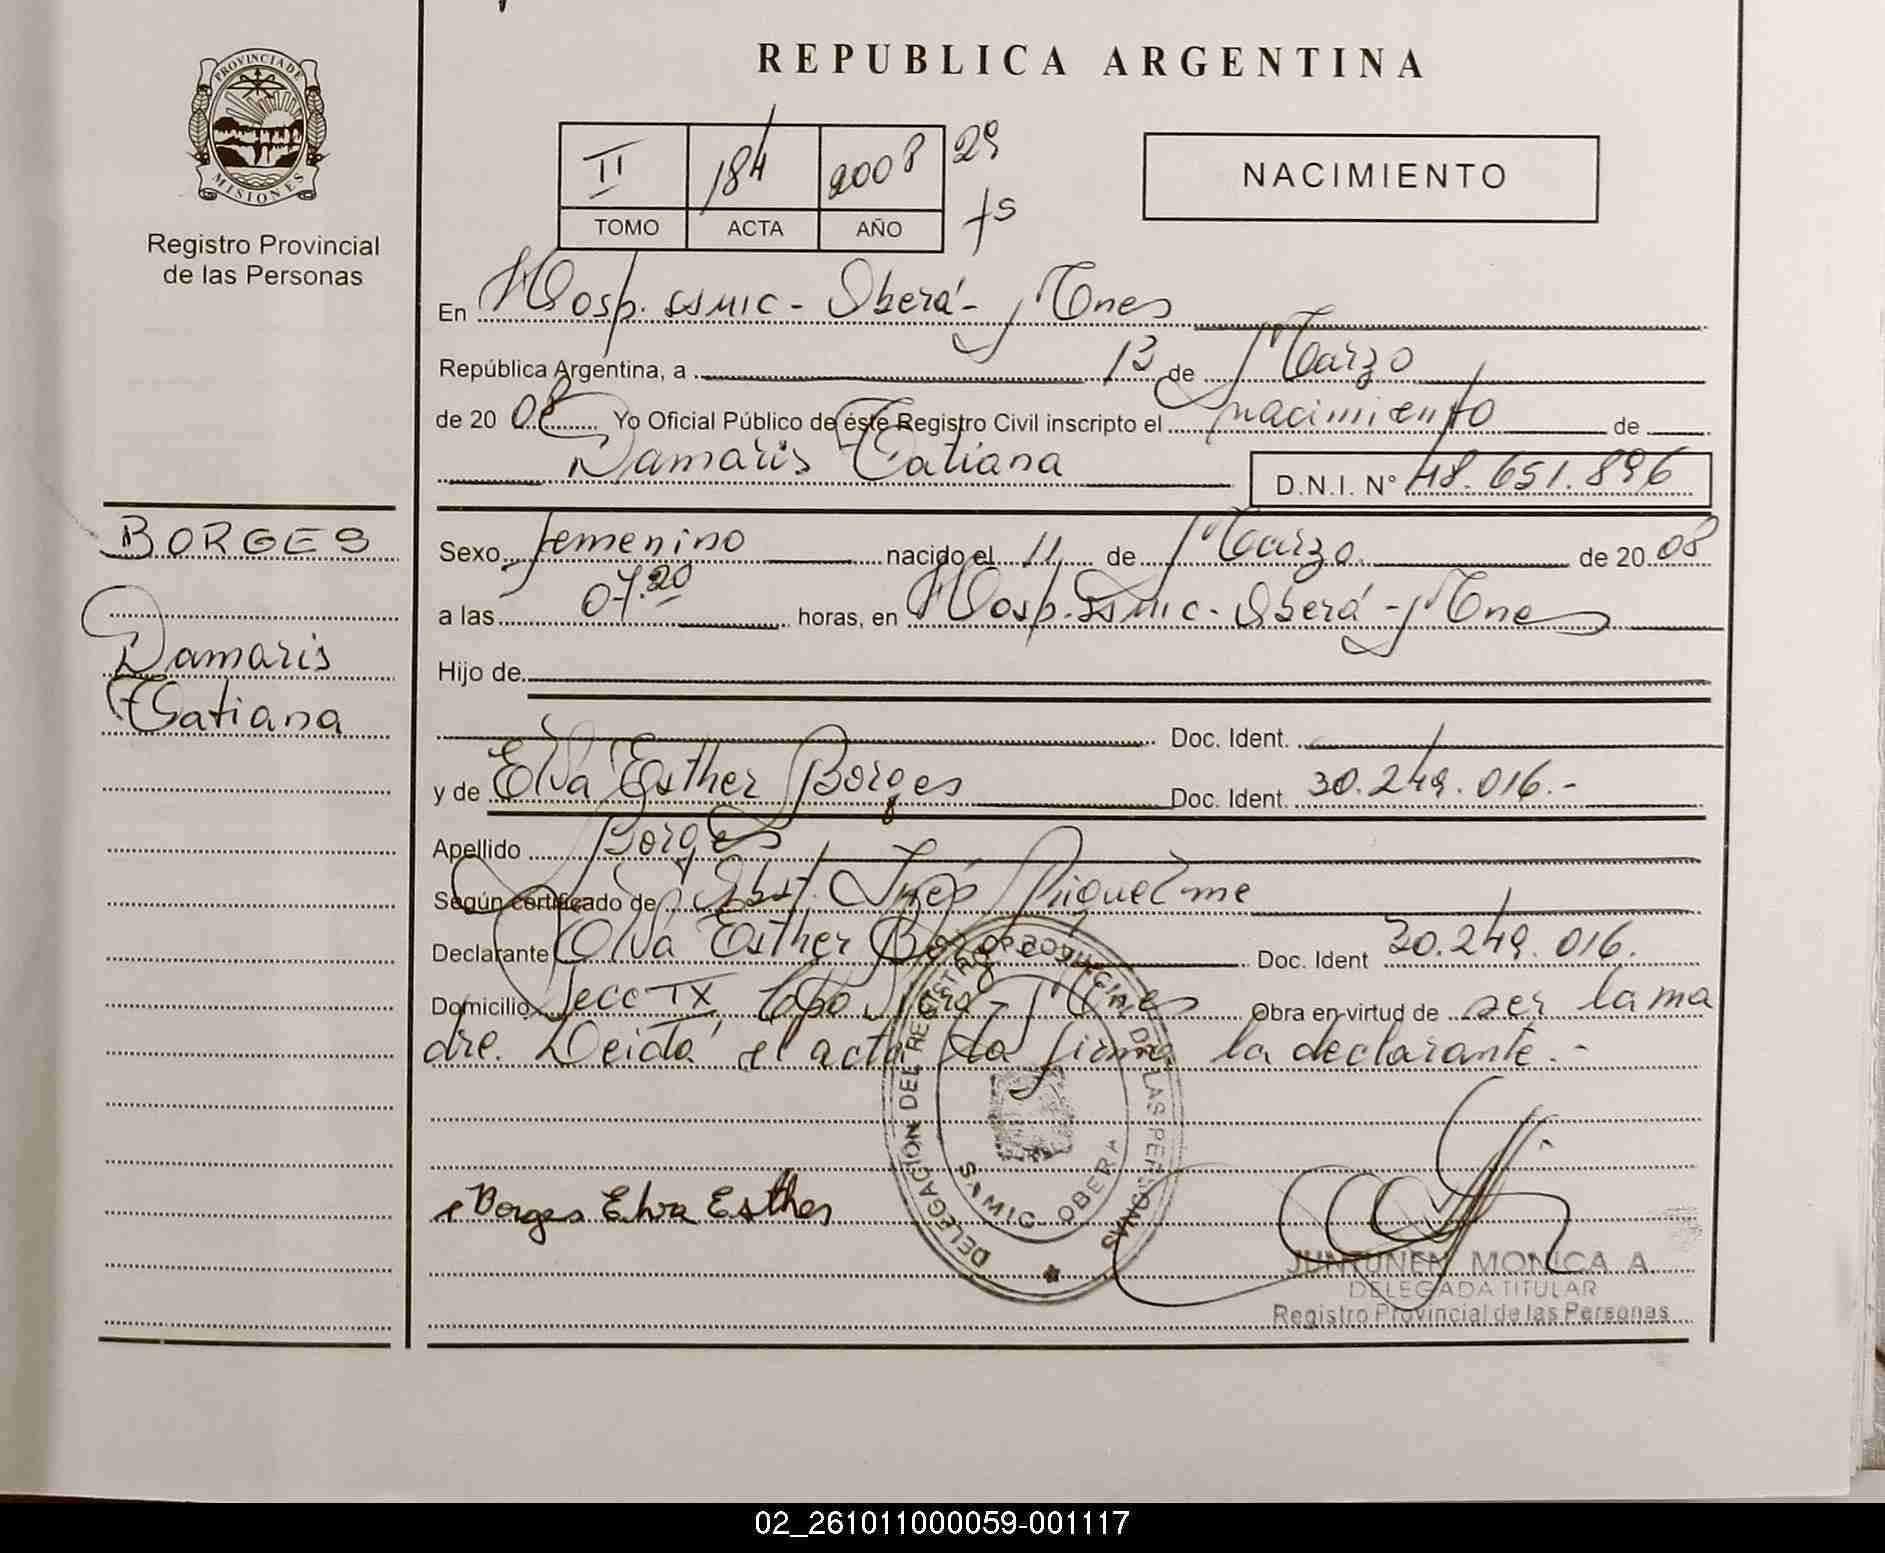 REPUBLICA ARGENTINA
PROVINCIA DE
MISIONES
Registro Provincial
de las Personas
II 184 2008 29
TOMO ACTA AÑO fs
NACIMIENTO
En Hosp. SAMIC - Oberá - Mnes
República Argentina, a 13 de Marzo
de 20 08 Yo Oficial Público de éste Registro Civil inscripto el nacimiento de
Damaris Tatiana D.N.I. N° 48.651.896
BORGES
Damaris
Tatiana
Sexo femenino nacido el 11 de Marzo de 20 08
a las 07.20 horas, en Hosp. Samic - Oberá - Mnes
Hijo de
Doc. Ident.
y de Elva Esther Borges Doc. Ident. 30.249.016.-
Apellido Borges
Según certificado de Obst. Inés Riquelme
Declarante Elva Esther Borges Doc. Ident 30.249.016.
Domicilio Secc IX, Mnes Obra en virtud de ser la ma
dre. Leída el acta la firma la declarante.-
DELEGACION DEL REGISTRO DE LAS PERSONAS
SAMIC OBERA
Borges Elva Esther
JUNTUNEN MONICA A.
DELEGADA TITULAR
Registro Provincial de las Personas
02_261011000059-001117